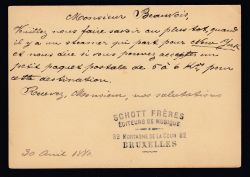 Monsieur Beauvois,
Veuillez nous faire savoir au plus tot, quand
il y a un steamer qui part pour New York
et nous dire si vous pouvez accepter un
petit paquet postale de 5 à 6 K pour
cette destination.
Recevez, Monsieur, nos salutations
SCHOTT FRÈRES
EDITEURS DE MUSIQUE
82 MONTAGNE DE LA COUR 82
BRUXELLES
30 Avril